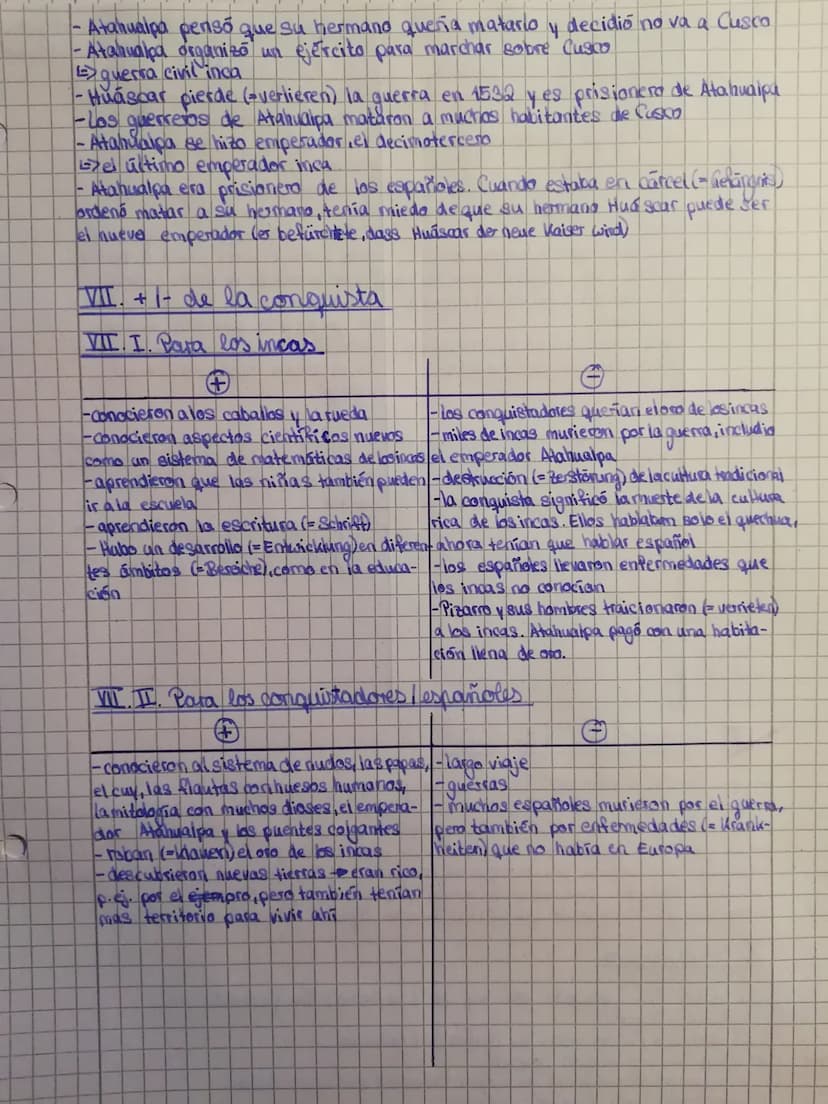 - Atahualpa pensó que su hermano quería matarlo y decidió no va a Cusco
- Atahualpa organizó un ejército para marchar sobre Cusco
↳> guerra civil inca
- Huáscar pierde (=verlieren) la guerra en 1532 y es prisionero de Atahualpa
- Los guerreros de Atahualpa mataron a muchos habitantes de Cusco
- Atahualpa se hizo emperador, el decimotercero
↳> el último emperador inca
- Atahualpa era prisionero de los españoles. Cuando estaba en cárcel (= Gefängnis)
ordenó matar a su hermano, tenía miedo de que su hermano Huáscar puede ser
el nuevo emperador (er befürchtete, dass Huáscar der neue Kaiser wird)
VII. + / - de la conquista
VII. I. Para los incas
+
-conocieron a los caballos y la rueda
-conocieron aspectos científicos nuevos
como un sistema de matemáticas de los incas
-aprendieron que las niñas también pueden
ir a la escuela
- aprendieron la escritura (= Schrift)
- Hubo un desarrollo (= Entwicklung) en diferen-
tes ámbitos (= Bereiche), como en la educa-
ción
-
-los conquistadores querían el oro de los incas
-miles de incas murieron por la guerra, includio
el emperador Atahualpa
-destrucción (= Zerstörung) de la cultura tradicional
-la conquista significó la muerte de la cultura
rica de los incas. Ellos hablaban solo el quechua,
ahora tenían que hablar español
-los españoles llevaron enfermedades que
los incas no conocían
-Pizarro y sus hombres traicionaron (= verrieten)
a los incas. Atahualpa pagó con una habita-
ción llena de oro.
VII. II. Para los conquistadores / españoles
+
-conocieron al sistema de nudos, las papas,
el cuy, las flautas con huesos humanos,
la mitología con muchos dioses, el empera-
dor Atahualpa y los puentes colgantes
- roban (= klauen) el oro de los incas
- descubrieron nuevas tierras → eran rico,
p. ej. por el, pero también tenían
más territorio para vivir ahí
-
- largo viaje
- guerras
- muchos españoles murieron por el guerra,
pero también por enfermedades (= Krank-
heiten) que no había en Europa